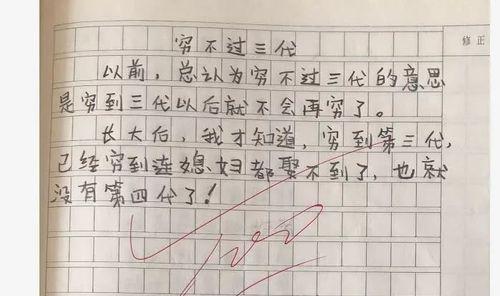 修正
穷不过三代
以前，总认为穷不过三代的意思
是穷到三代以后就不会再穷了。
长大后，我才知道，穷到第三代，
已经穷到连媳妇都娶不到了，也就
没有第四代了！
100